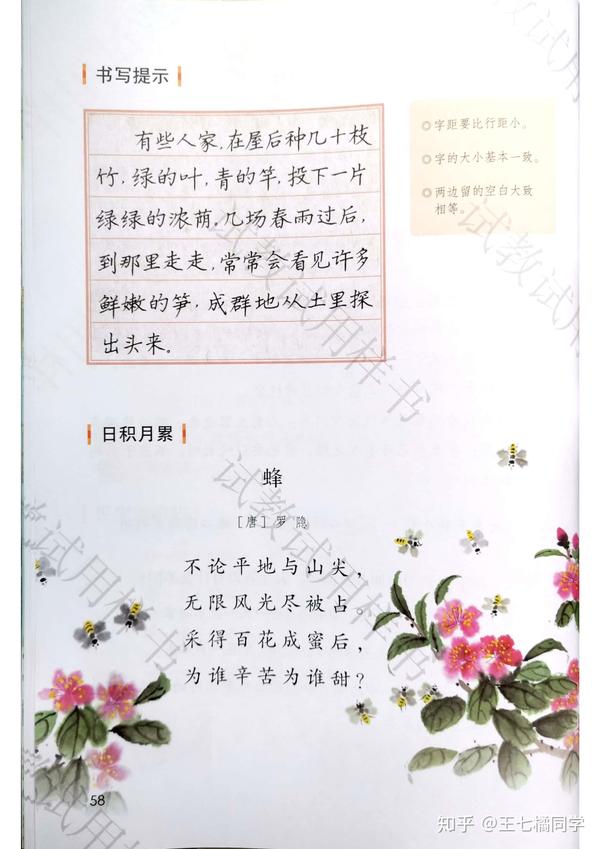 书写提示
有些人家,在屋后种几十枝
竹,绿的叶,青的竿,投下一片
绿绿的浓荫。几场春雨过后,
到那里走走,常常会看见许多
鲜嫩的笋,成群地从土里探
出头来。
◎字距要比行距小。
◎字的大小基本一致。
◎两边留的空白大致
相等。
日积月累
蜂
[唐]罗隐
不论平地与山尖,
无限风光尽被占。
采得百花成蜜后,
为谁辛苦为谁甜?
58
试教试用样书
试教试用样书
试教试用样书
知乎 @王七橘同学